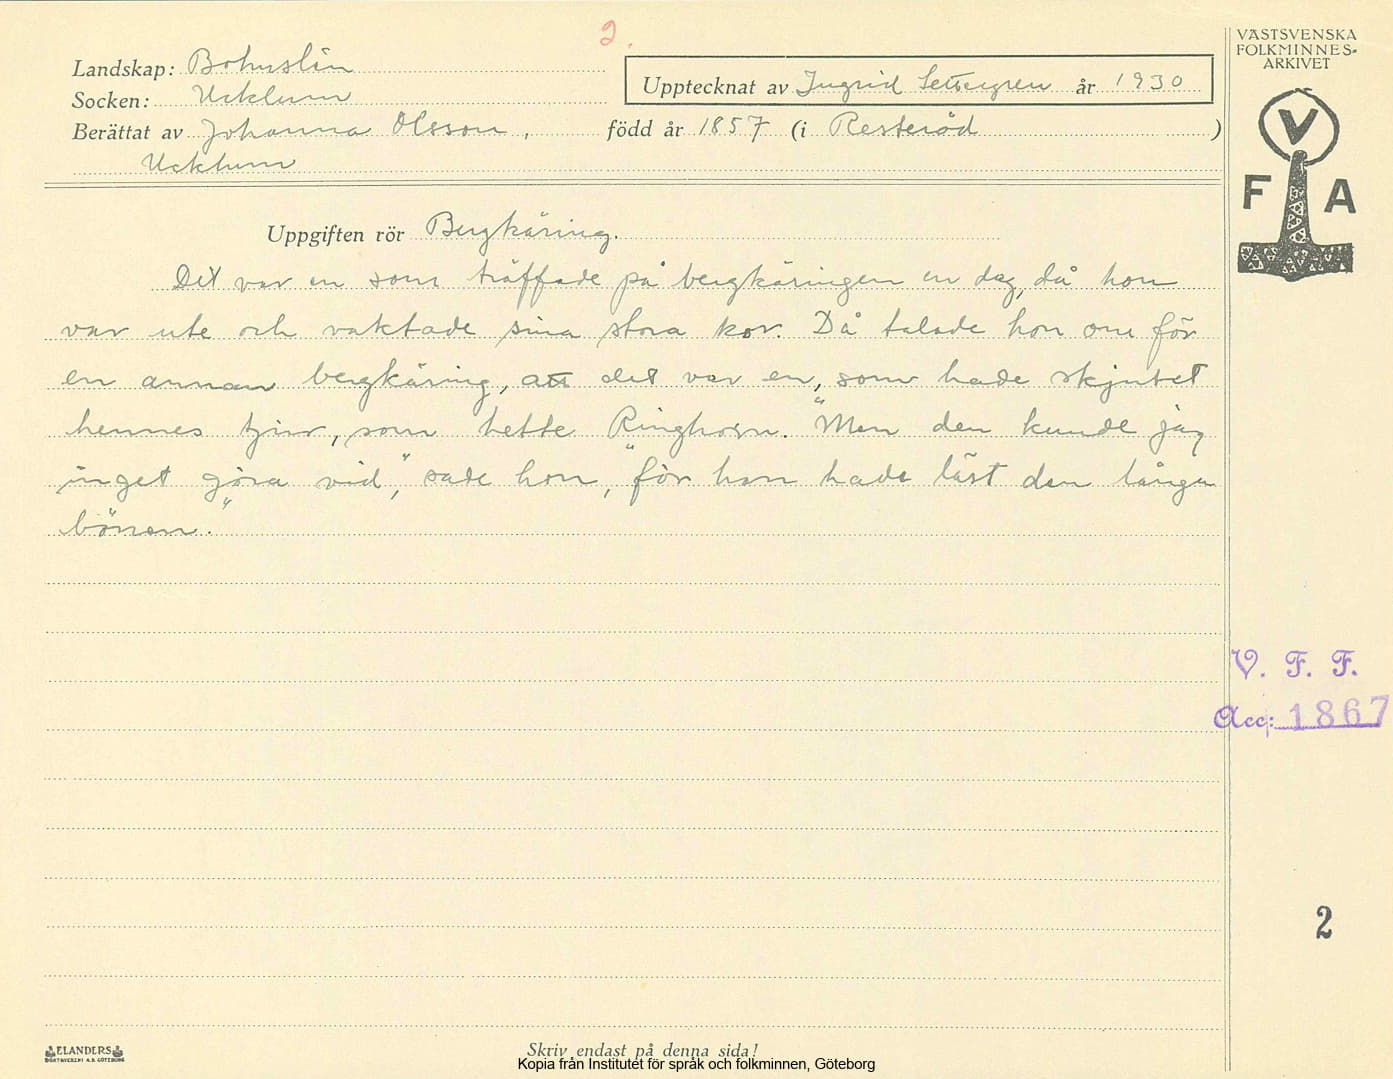 2.
Landskap: Bohuslän
Socken: Ucklum
Upptecknat av Ingrid Settergren år 1930
Berättat av Johanna Olsson, född år 1857 (i Resteröd)
Ucklum
Uppgiften rör Bergkäring.
Det var en som träffade på bergkäringen en dag, då hon
var ute och vaktade sina stora kor. Då talade hon om för
en annan bergkäring, att det var en, som hade skjutet
hennes tjur, som hette Ringhorn. "Men den kunde jag
inget göra vid", sade hon, "för han hade läst den långa
bönen."
VÄSTSVENSKA
FOLKMINNES-
ARKIVET
V
F A
V. F. F.
Acc: 1867
2
ELANDERS
BOKTRYCKERI A.B. GÖTEBORG
Skriv endast på denna sida!
Kopia från Institutet för språk och folkminnen, Göteborg